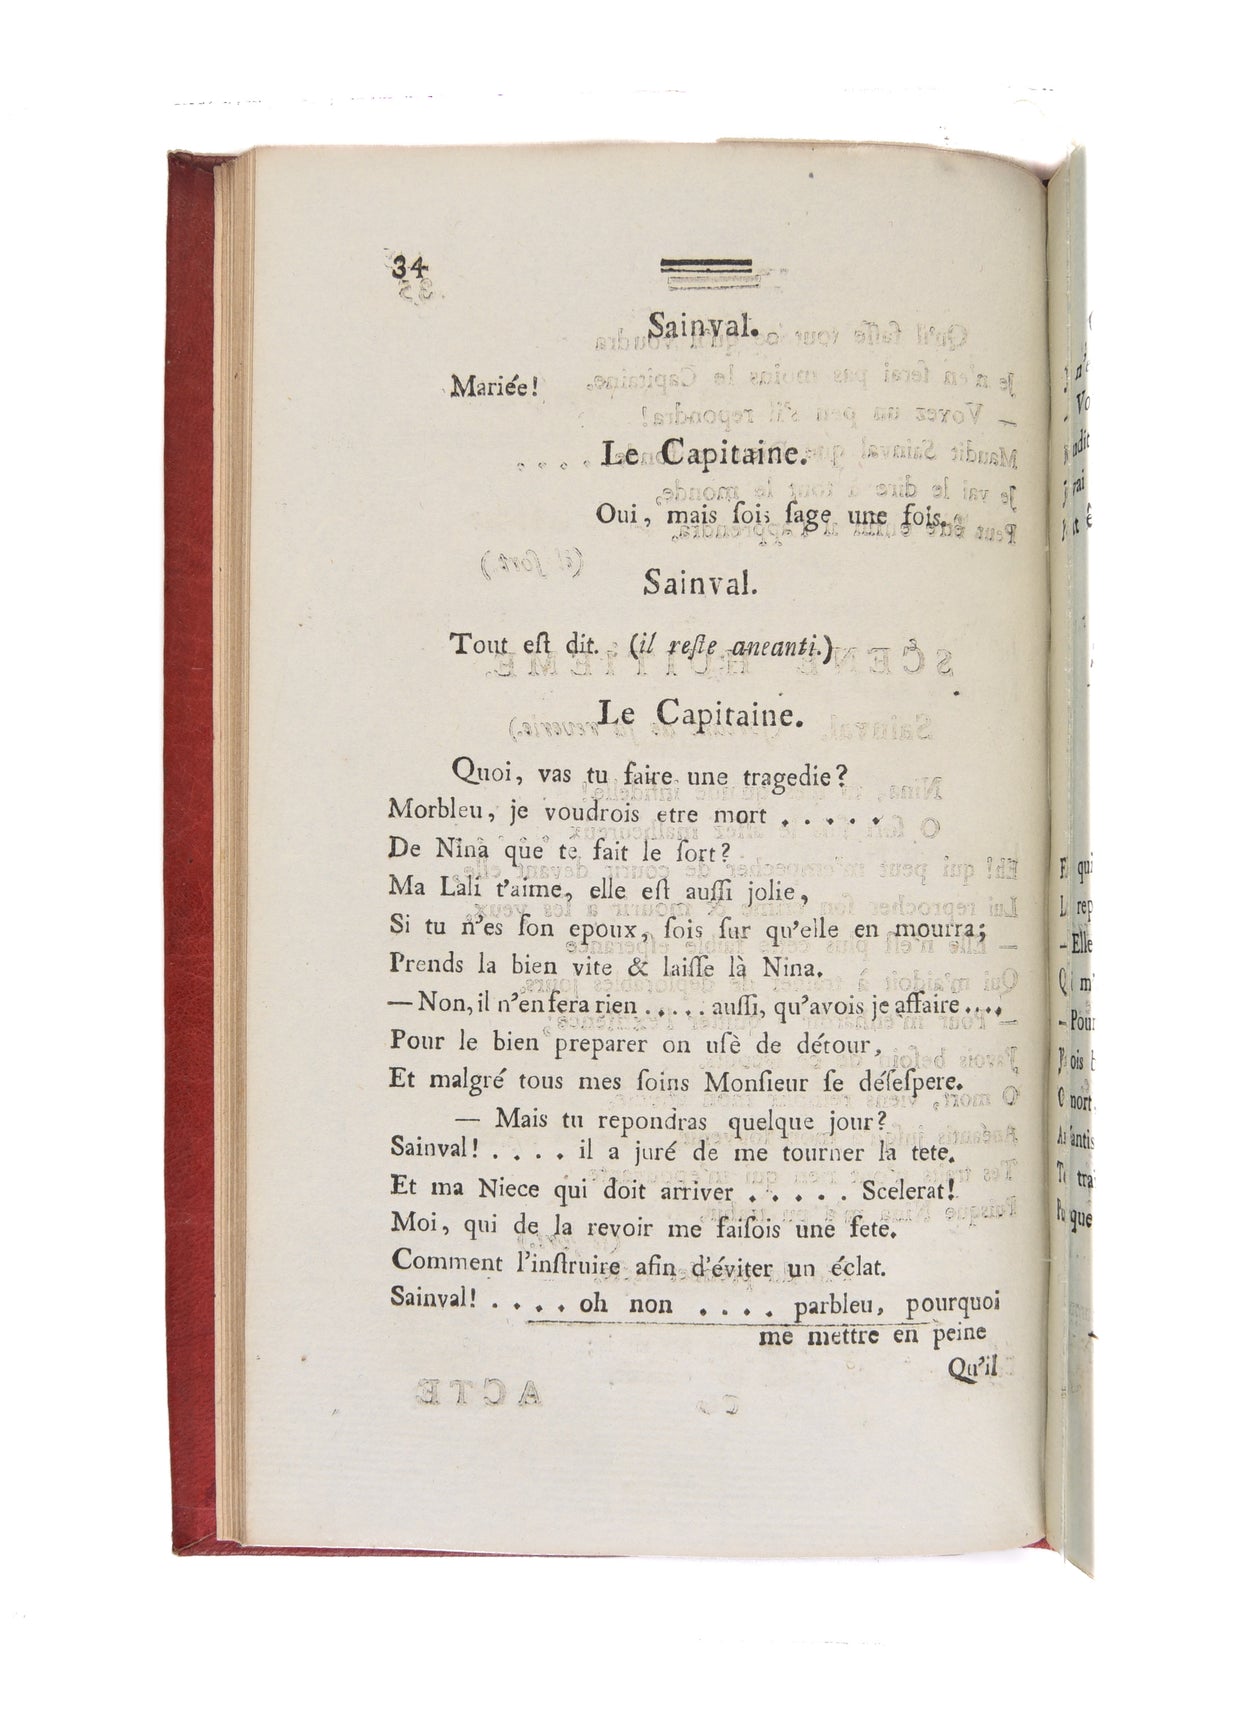 34
Sainval.
Mariée!
Le Capitaine.
Oui, mais ſois ſage une fois.
Sainval.
Tout eſt dit. (il reſte aneanti.)
Le Capitaine.
Quoi, vas tu faire une tragedie?
Morbleu, je voudrois etre mort . . . . .
De Nina que te fait le ſort?
Ma Lali t'aime, elle eſt auſſi jolie,
Si tu n'es ſon epoux, ſois ſur qu'elle en mourra;
Prends la bien vite & laiſſe là Nina.
— Non, il n'en fera rien . . . . . auſſi, qu'avois je affaire . . . .
Pour le bien preparer on uſè de détour,
Et malgré tous mes ſoins Monſieur ſe déſeſpere.
— Mais tu repondras quelque jour?
Sainval! . . . . il a juré de me tourner la tete.
Et ma Niece qui doit arriver . . . . . Scelerat!
Moi, qui de la revoir me faiſois une fete.
Comment l'inſtruire afin d'éviter un éclat.
Sainval! . . . . oh non . . . . parbleu, pourquoi
me mettre en peine
Qu'il